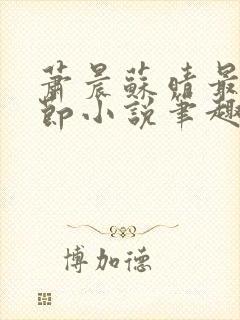 蕭晨蘇晴最
節小說筆趣
博加德